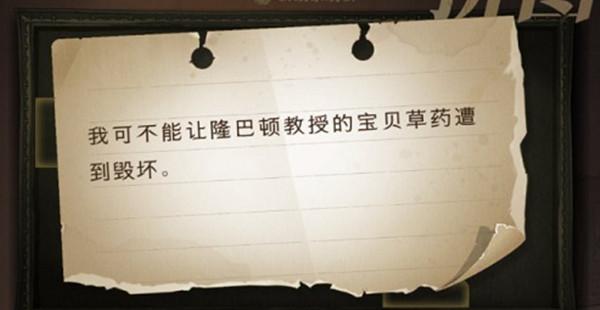 我可不能让隆巴顿教授的宝贝草药遭
到毁坏。